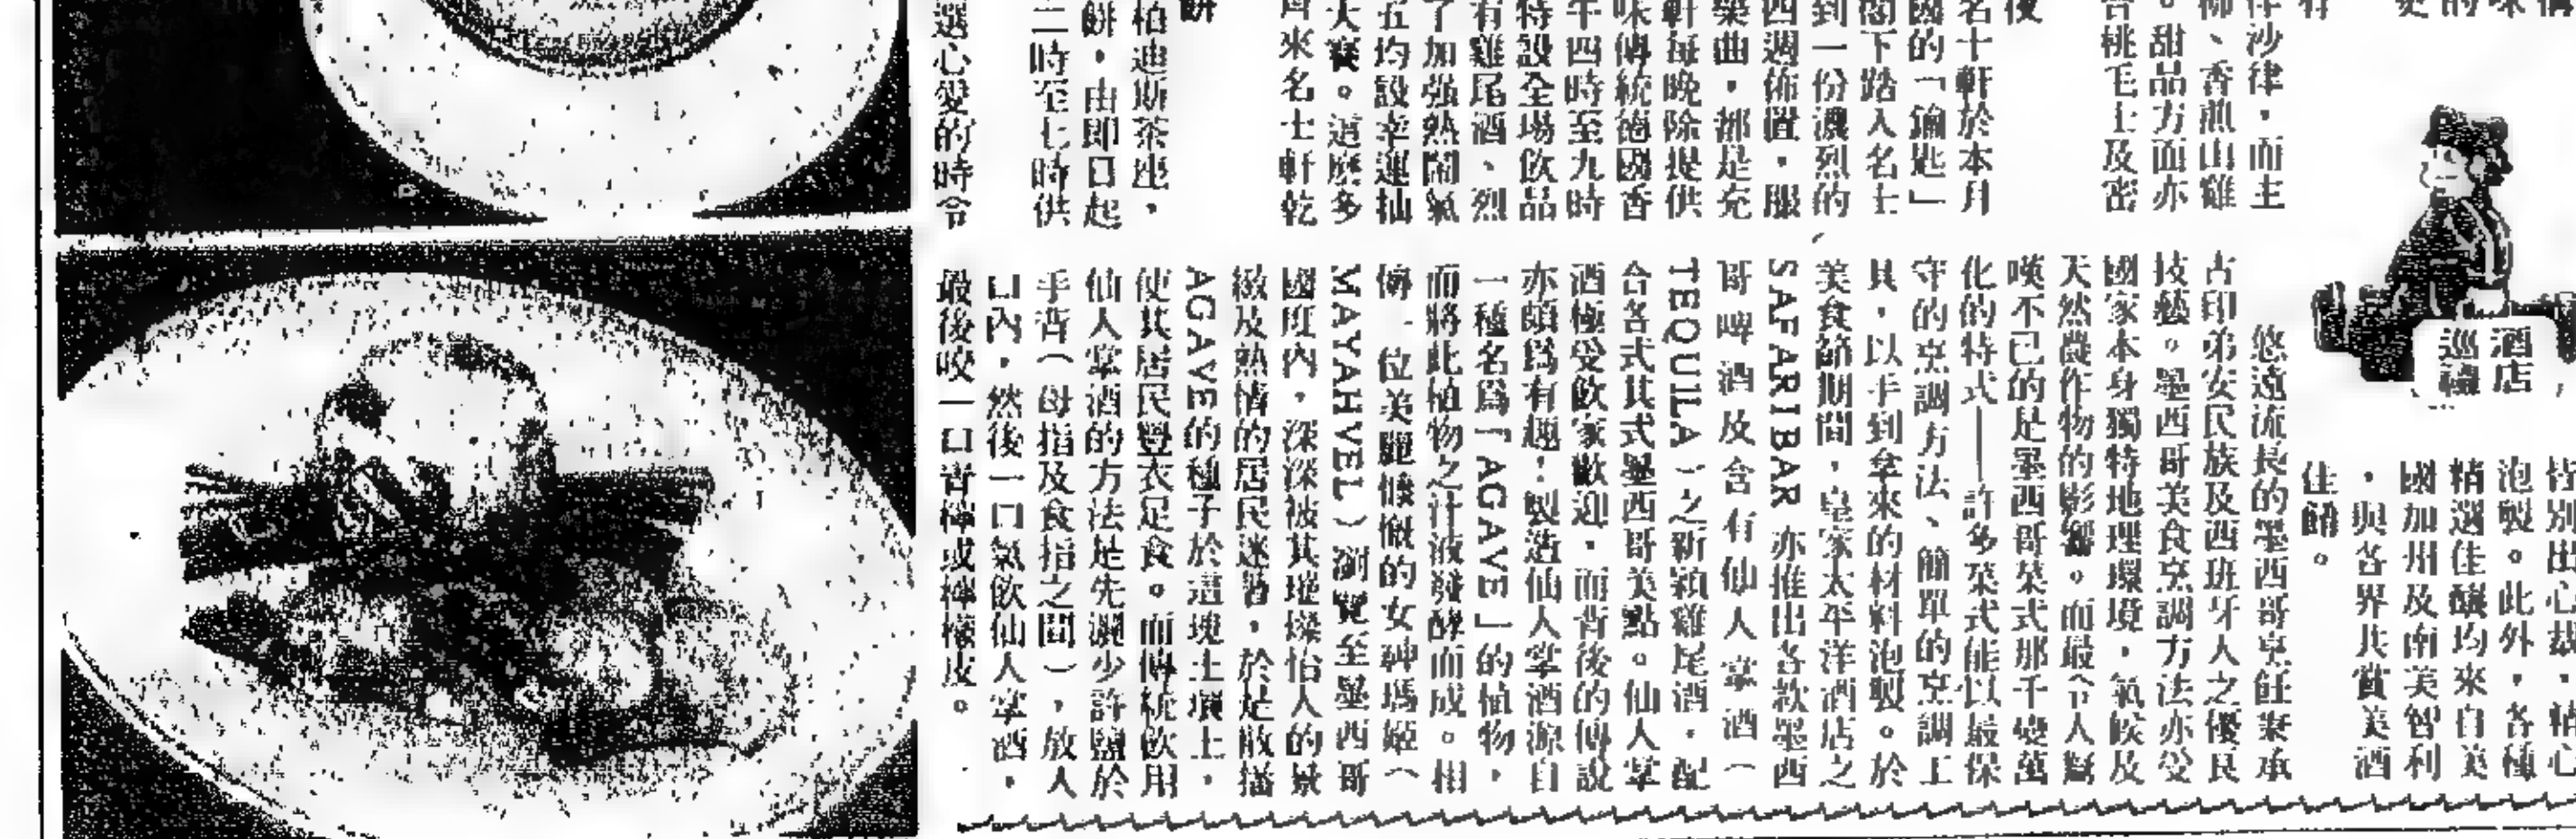 酒店
巡禮
律沙律，而主
柳、香煎山雞
。甜品方面亦
合桃毛士及密
後
名士軒於本月
國的「鑰匙」
閣下踏入名士
到一份濃烈的
四週佈置，服
樂曲，都是充
軒每晚除提供
味傳統德國香
午四時至九時
特設全場飲品
有雞尾酒、烈
了加強熱鬧氣
五均設幸運抽
大賽。這麼多
齊來名士軒乾
餅
柏迪斯茶座，
餅，由即日起
二時至七時供
選心愛的時令
特別出心裁，精心
泡製。此外，各種
精選佳釀均來自美
國加州及南美智利
，與各界共賞美酒
佳餚。
悠遠流長的墨西哥烹飪秉承
古印弟安民族及西班牙人之優良
技藝。墨西哥美食烹調方法亦受
國家本身獨特地理環境，氣候及
天然農作物的影響。而最令人驚
嘆不已的是墨西哥菜式那千變萬
化的特式——許多菜式能以最保
守的烹調方法、簡單的烹調工
具，以手到拿來的材料泡製。於
美食節期間，皇家太平洋酒店之
SAFARI BAR 亦推出各款墨西
哥啤酒及含有仙人掌酒（
TEQUILA）之新穎雞尾酒，配
合各式其式墨西哥美點。仙人掌
酒極受飲家歡迎，而背後的傳說
亦頗爲有趣：製造仙人掌酒源自
一種名爲「AGAVE」的植物，
而將此植物之汁液發酵而成。相
傳一位美麗慷慨的女神瑪姬（
MAYAHVEL）瀏覽至墨西哥
國度內，深深被其璀璨怡人的景
緻及熱情的居民迷着，於是散播
AGAVE的種子於這塊土壤上，
使其居民豐衣足食。而傳統飲用
仙人掌酒的方法是先灑少許鹽於
手背（母指及食指之間），放入
口內，然後一口氣飲仙人掌酒，
最後咬一口青檸或檸檬皮。